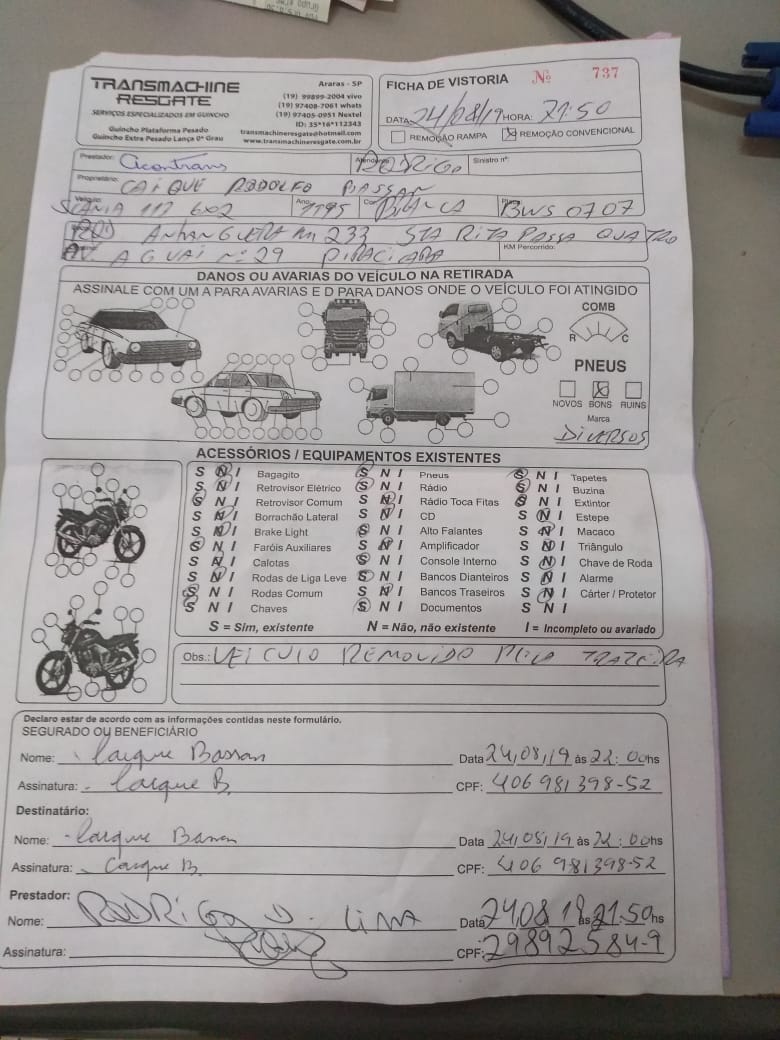 TRANSMACHINE
RESGATE
SERVIÇOS ESPECIALIZADOS EM GUINCHO
Guincho Plataforma Pesado
Guincho Extra Pesado Lança 0ª Grau
Araras - SP
(19) 99899-2004 vivo
(19) 97408-7061 whats
(19) 97405-0951 Nextel
ID: 35*16*112343
transmachineresgate@hotmail.com
www.transmachineresgate.com.br
FICHA DE VISTORIA Nº 737
DATA 24/08/19 HORA: 21:50
REMOÇÃO RAMPA REMOÇÃO CONVENCIONAL
Prestador: Acontrans RODRIGO Sinistro nº:
Proprietário: CAIQUE RODOLFO BASSAN
Veículo: SCANIA 112 6x2 Ano: 1195 Cor: BRANCA Placa: BWS 0707
ROD ANHANGUERA KM 233 STA RITA PASSA QUATRO
AV. AGUAI Nº 29 PIRACICABA KM Percorrido:
DANOS OU AVARIAS DO VEÍCULO NA RETIRADA
ASSINALE COM UM A PARA AVARIAS E D PARA DANOS ONDE O VEÍCULO FOI ATINGIDO
COMB
R C
PNEUS
NOVOS BONS RUINS
Marca
DIVERSOS
ACESSÓRIOS / EQUIPAMENTOS EXISTENTES
S N I Bagagito S N I Pneus S N I Tapetes
S N I Retrovisor Elétrico S N I Rádio S N I Buzina
S N I Retrovisor Comum S N I Rádio Toca Fitas S N I Extintor
S N I Borrachão Lateral S N I CD S N I Estepe
S N I Brake Light S N I Alto Falantes S N I Macaco
S N I Faróis Auxiliares S N I Amplificador S N I Triângulo
S N I Calotas S N I Console Interno S N I Chave de Roda
S N I Rodas de Liga Leve S N I Bancos Dianteiros S N I Alarme
S N I Rodas Comum S N I Bancos Traseiros S N I Cárter / Protetor
S N I Chaves S N I Documentos S N I
S = Sim, existente N = Não, não existente I = Incompleto ou avariado
Obs.: VEICULO REMOVIDO PELA TRAZEIRA
Declaro estar de acordo com as informações contidas neste formulário.
SEGURADO OU BENEFICIÁRIO
Nome: Caique Bassan Data 24/08/19 às 22:00hs
Assinatura: Caique B. CPF: 406 981 398-52
Destinatário:
Nome: Caique Bassan Data 24/08/19 às 22:00hs
Assinatura: Caique B. CPF: 406 981398-52
Prestador:
Nome: RODRIGO D. LIMA Data 24/08/19 às 21:50hs
Assinatura: CPF: 29892584-9